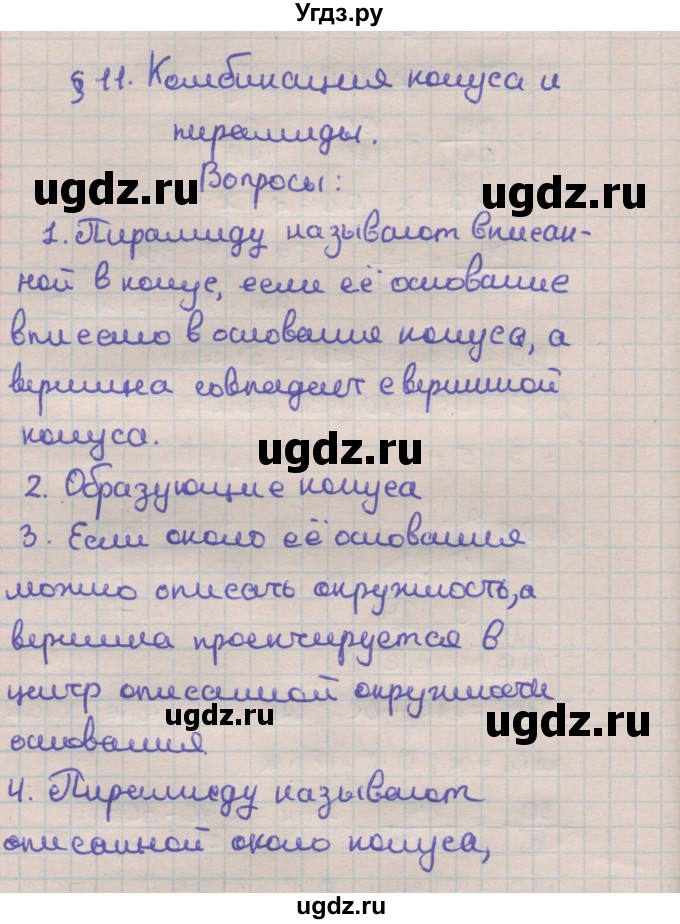 Угдз.ру
§ 11. Комбинация конуса и
пирамиды.
Вопросы:
ugdz.ru
ugdz.ru
1. Пирамиду называют вписан-
ной в конус, если её основание
вписано в основания конуса, а
вершина совпадает с вершиной
конуса.
ugdz.ru
2. Образующие конуса
3. Если около её основания
можно описать окружность, а
вершина проецируется в
центр описанной окружности
ugdz.ru
ugdz.ru
основания.
4. Пирамиду называют
описанной около конуса,
ugdz.ru